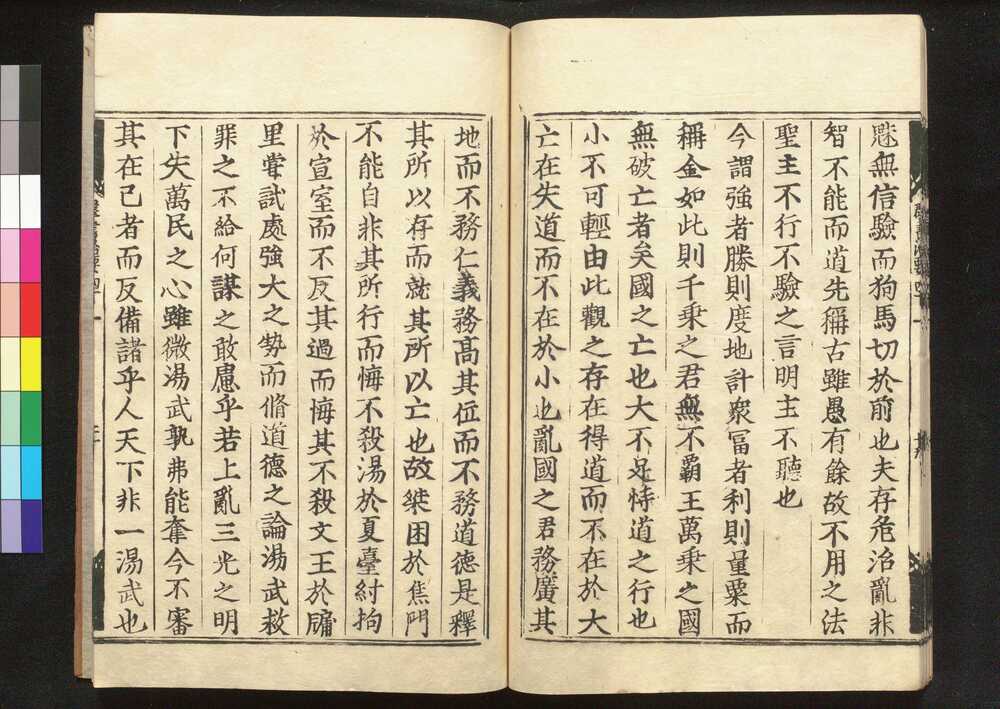 魅無信驗而狗馬切於前也夫存危治亂非
智不能而道先稱古雖愚有餘故不用之法
聖主不行不驗之言明主不聽也
今謂強者勝則度地計衆冨者利則量粟而
稱金如此則千乘之君無不覇王萬乘之國
無破亡者矣國之亡也大不足恃道之行也
小不可輕由此觀之存在得道而不在於大
亡在失道而不在於小也亂國之君務廣其
地而不務仁義務髙其位而不務道德是釋
其所以存而就其所以亡也故桀困於焦門
不能自非其所行而悔不殺湯於夏臺紂拘
於宣室而不反其過而悔其不殺文王於牖
里甞試處強大之勢而脩道德之論湯武救
罪之不給何謀之敢慮乎若上亂三光之明
下失萬民之心雖微湯武孰弗能奪今不審
其在己者而反備諸乎人天下非一湯武也